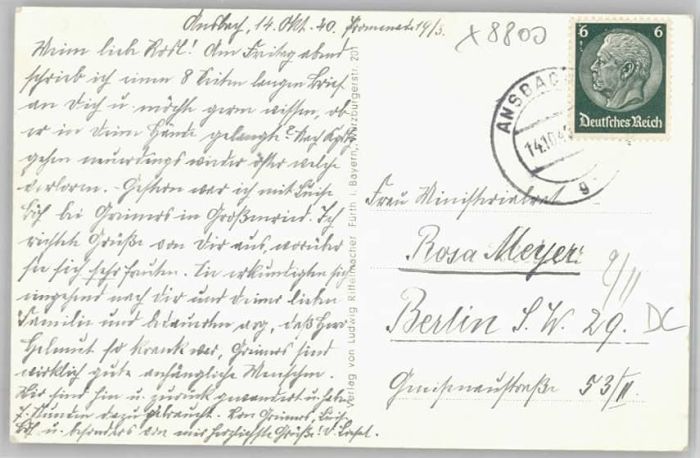 Ansbach, 14. Okt. 40. Promenade 19/3.
Mein lieb Rosl! Am Freitag abend
schrieb ich einen 8 Seiten langen Brief
an Dich u. möchte gern wissen, ob
er in Deine Hände gelangte? Nach
gehen neuerdings wieder öfter welche
verloren. Gestern war ich mit Luise
bei Grimers in Großenried. Ich
richtete Grüße von Dir aus, worüber
sie sich sehr freuten. Sie erkundigten sich
eingehend nach Dir und Deiner lieben
Familie und bedauerten arg, daß Herr
Helmut so krank war, Grimers sind
wirklich gute anhängliche Menschen.
Wir sind hin u. zurück gewandert u. haben
7 Stunden dazu gebraucht. Von Grimers, Luise
u. besonders von mir herzlichste Grüße! D. Liesel.
Verlag von Ludwig Riffelmacher, Fürth i. Bayern, Würzburgerstr. 201
x 8800
6 6
Deutsches Reich
ANSBACH
14.10.4
g
Frau Ministerialrat
Rosa Meyer
Berlin S.W. 29.
Gneisenaustraße 53/II